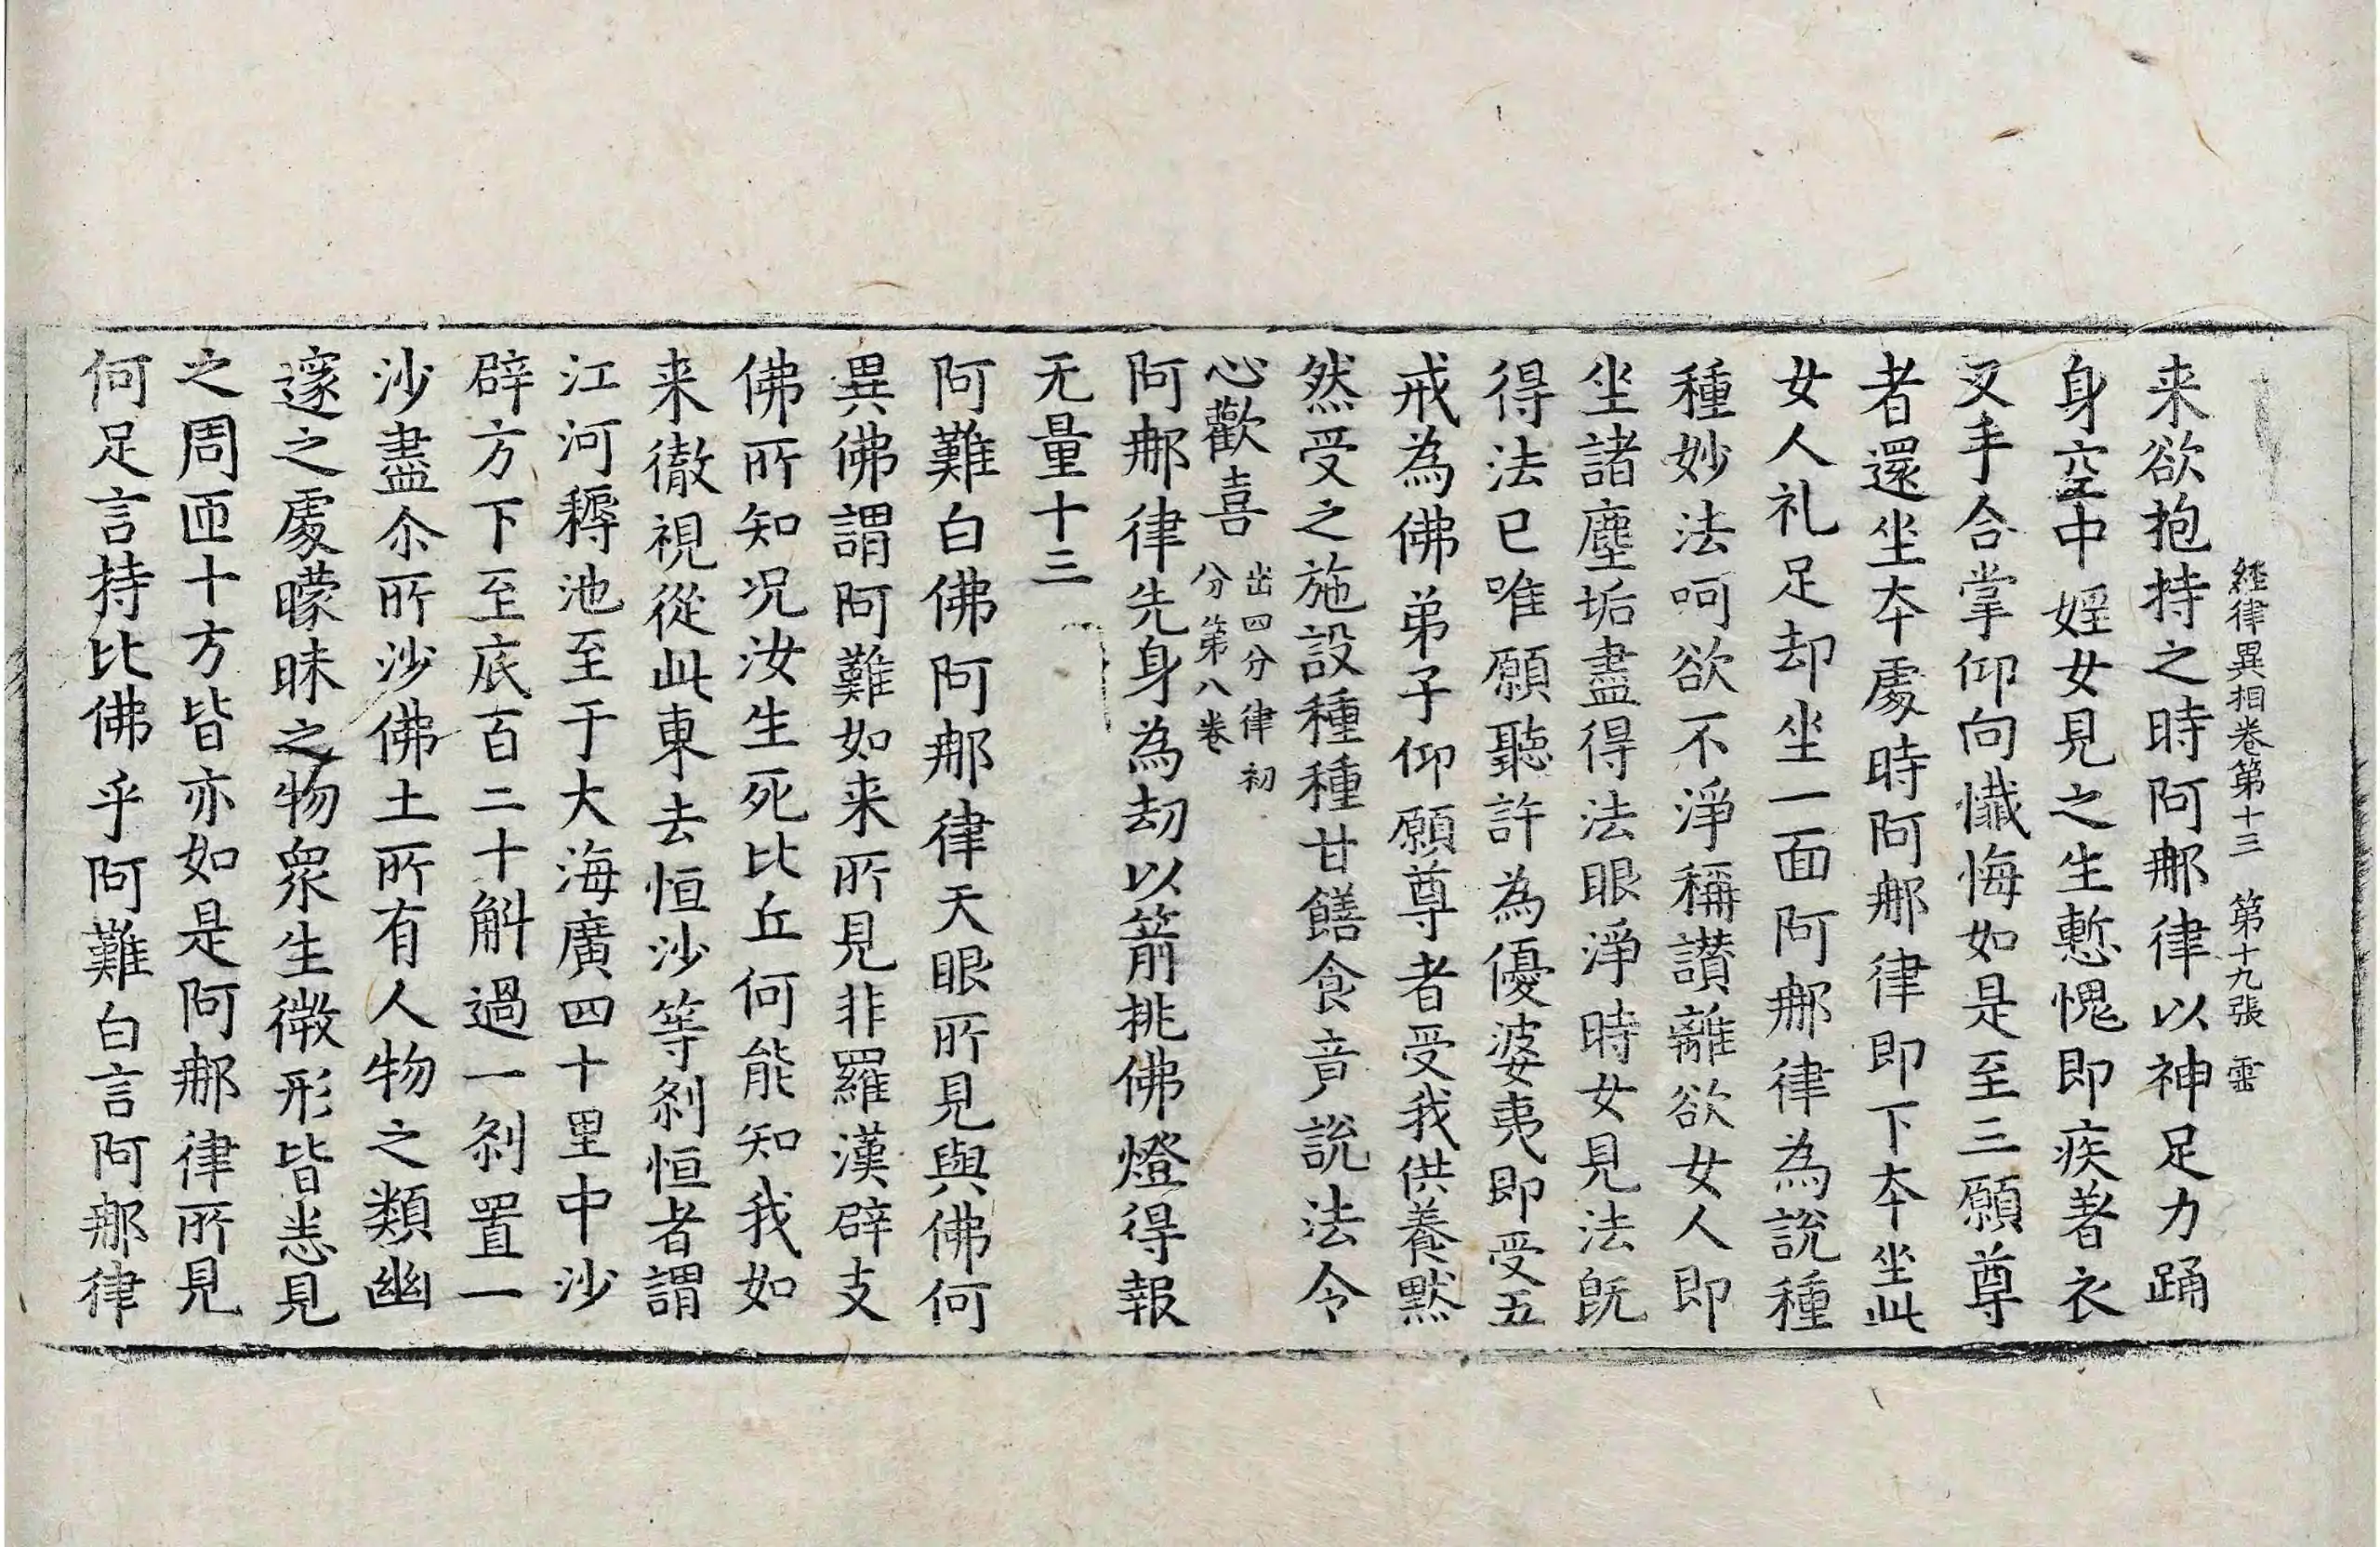 経律異相卷第十三 第十九張 啚
来欲抱持之時阿那律以神足力踊
身空中婬女見之生慙愧即疾著衣
叉手合掌仰向懺悔如是至三願尊
者還坐本處時阿那律即下本坐此
女人礼足却坐一面阿那律為說種
種妙法呵欲不淨稱讚離欲女人即
坐諸塵垢盡得法眼淨時女見法既
得法已唯願聽許為優婆夷即受五
戒為佛弟子仰願尊者受我供養黙
然受之施設種種甘饍食音說法令
心歡喜 出四分律初
分第八卷
阿那律先身為劫以箭挑佛燈得報
无量十三
阿難白佛阿那律天眼所見與佛何
異佛謂阿難如来所見非羅漢辟支
佛所知况汝生死比丘何能知我如
来徹視從此東去恒沙等剎恒者謂
江河稱池至于大海廣四十里中沙
辟方下至底百二十斛過一剎置一
沙盡尒所沙佛土所有人物之類幽
邃之處矇昧之物衆生微形皆悉見
之周匝十方皆亦如是阿那律所見
何足言持比佛乎阿難白言阿那律